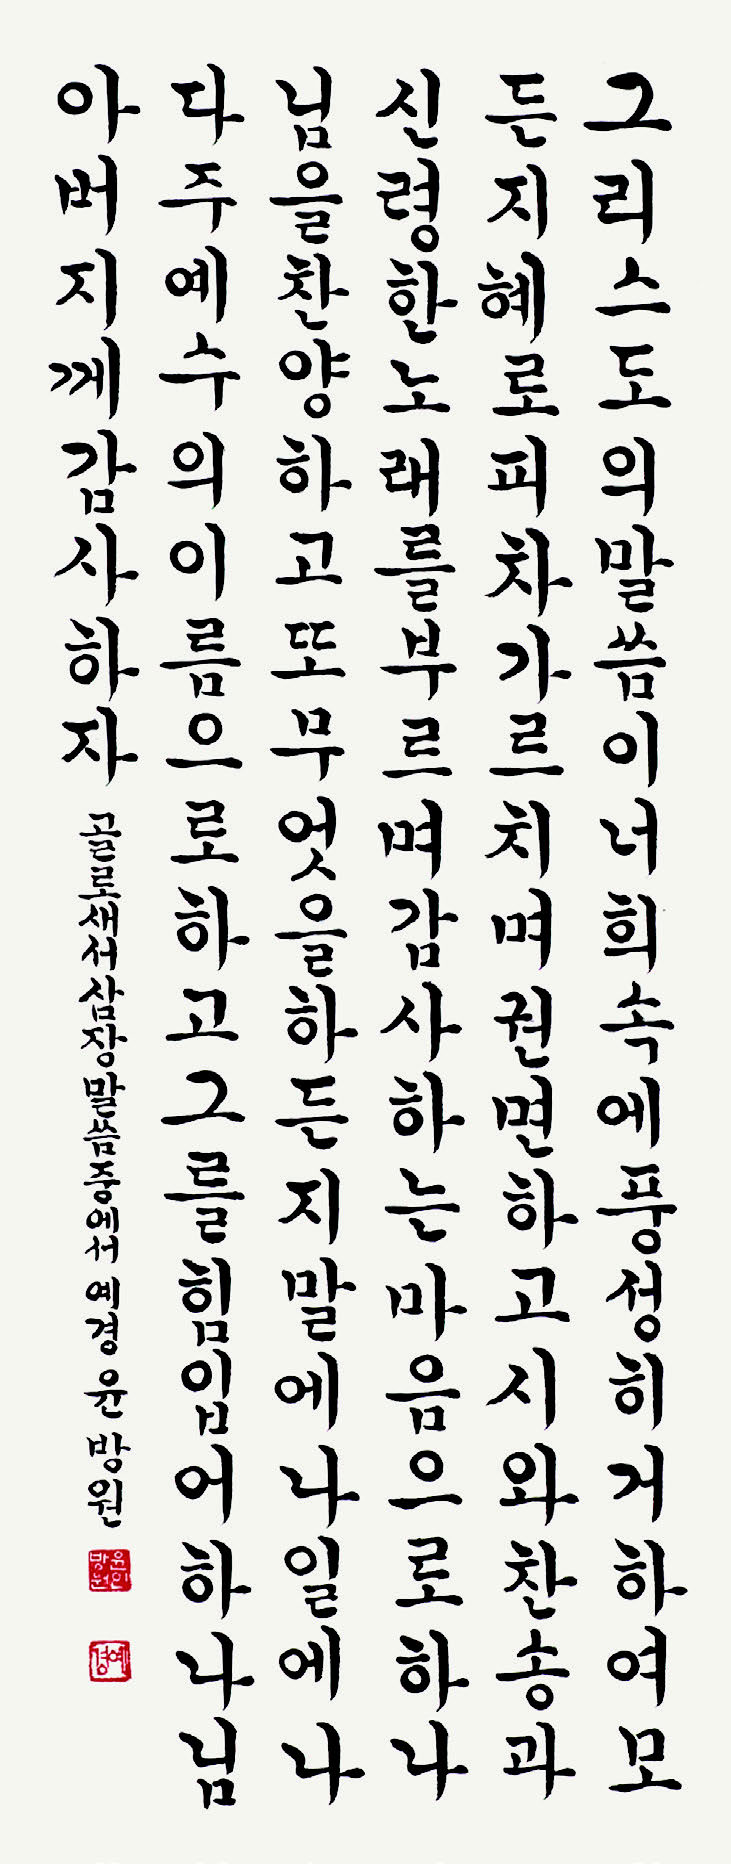 그리스도의말씀이너희속에풍성히거하여모
든지혜로피차가르치며권면하고시와찬송과
신령한노래를부르며감사하는마음으로하나
님을찬양하고또무엇을하든지말에나일에나
다주예수의이름으로하고그를힘입어하나님
아버지께감사하자
골로새서삼장말씀중에서 예경 윤방원
윤방원인
예경